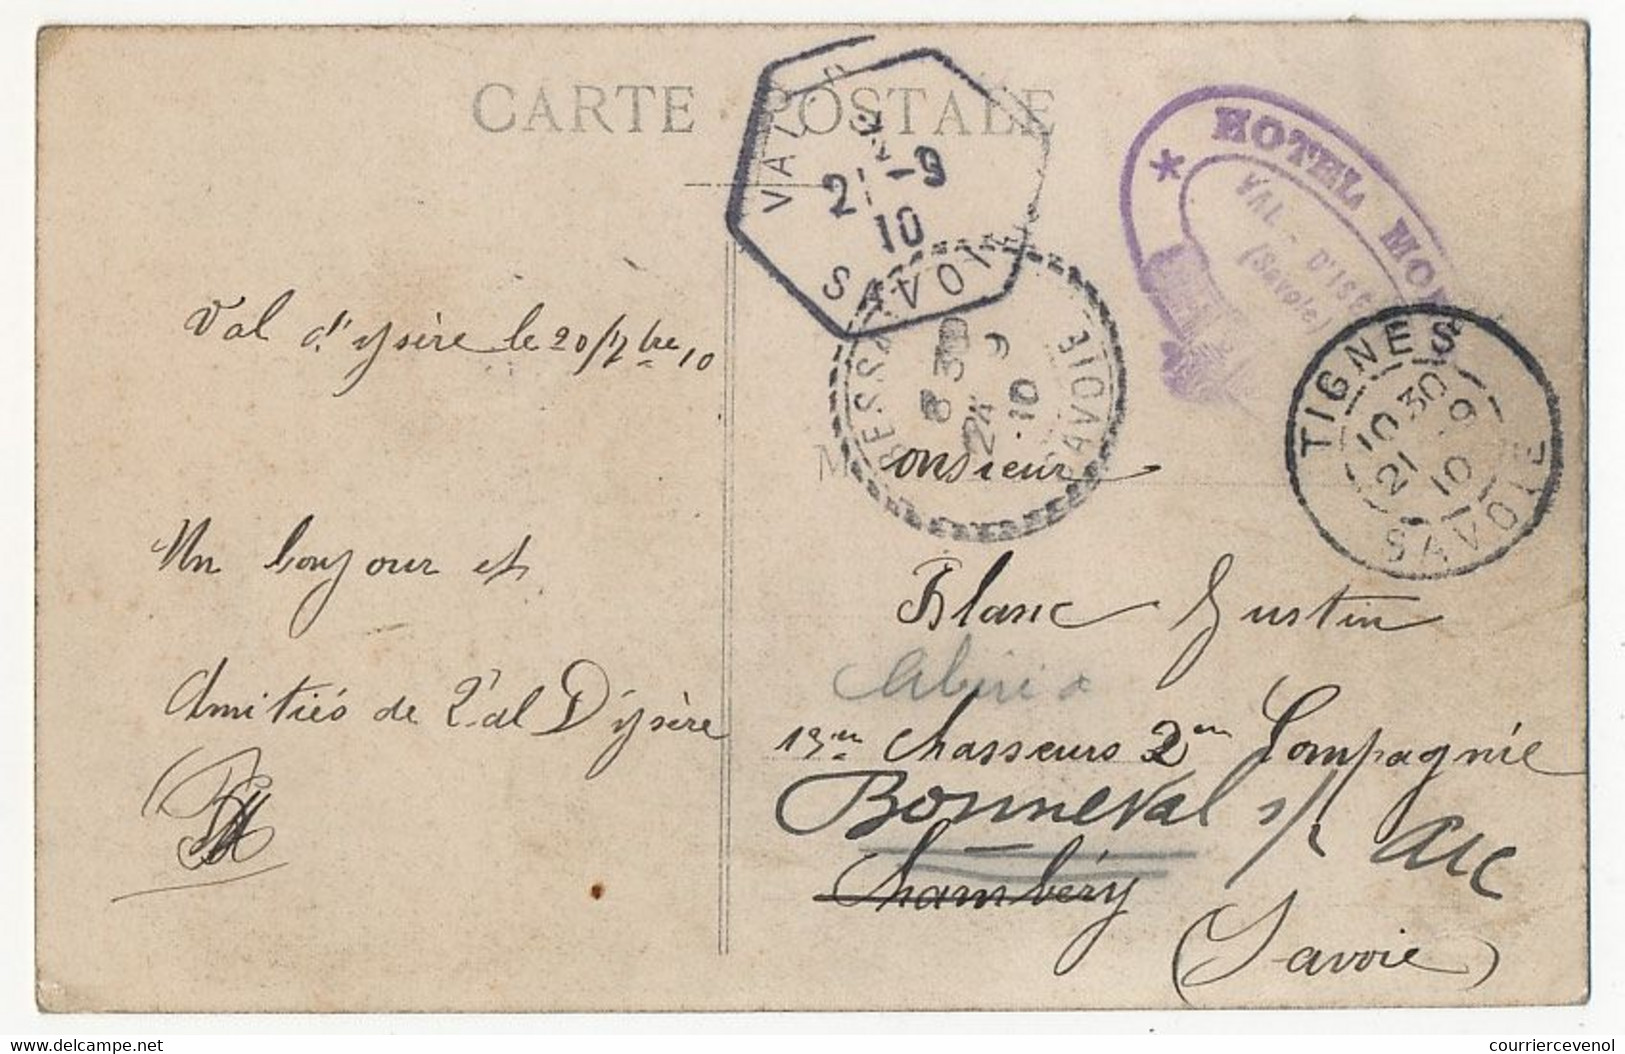 CARTE POSTALE
VAL-D
21 -9
10
SAVOIE
* HOTEL MON
VAL-D'ISÈ
(Savoie)
BESSA
8 30
24 9
10
SAVOIE
TIGNES
10 30
21 -9
10
SAVOIE
Val d'ysère le 20/7bre 10
Un bonjour et
Amitiés de Val D'ysère
Monsieur
Blanc Gustin
13em Chasseurs 2em Compagnie
Bonneval s/ Arc
Chambéry
(Savoie)
courriercevenol